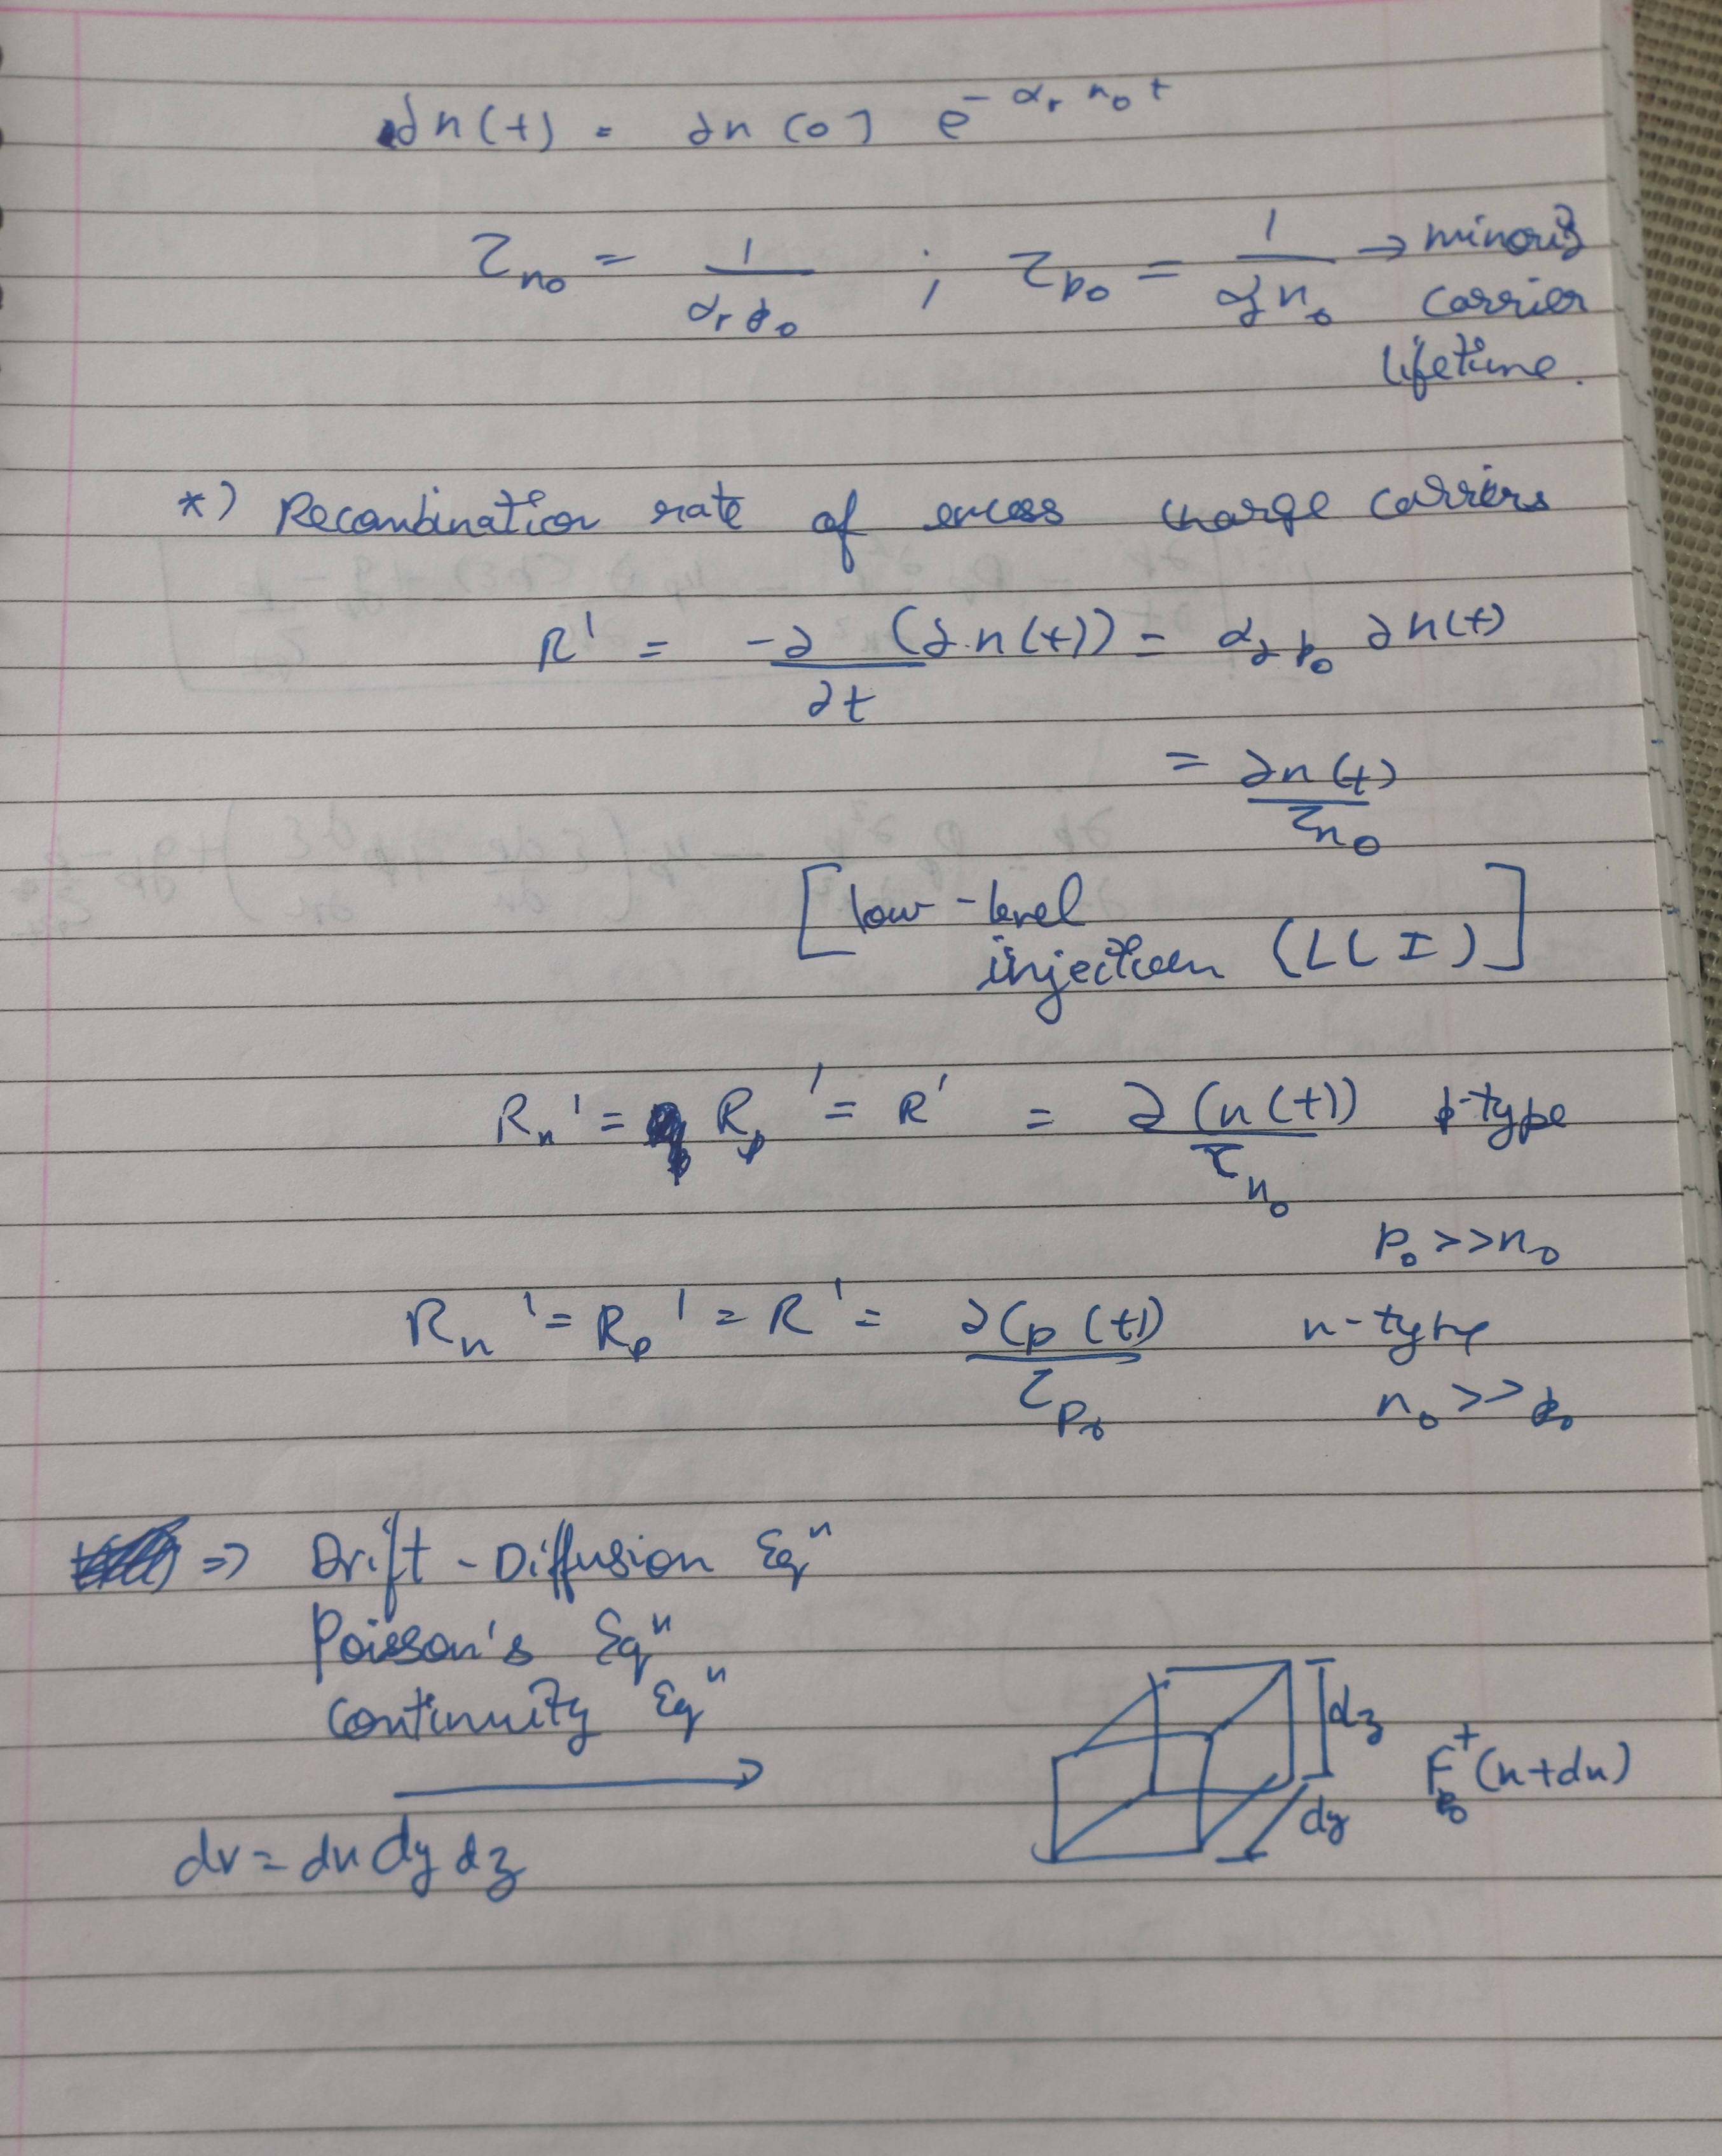 ∂n(t) = ∂n(0) e^{-α_r n_0 t}
τ_{n0} = 1/(α_r p_0) ; τ_{p0} = 1/(α_r n_0) → minority
carrier
lifetime.
*) Recombination rate of excess charge carriers
R' = -∂/∂t (∂n(t)) = α_r p_0 ∂n(t)
= ∂n(t)/τ_{n0}
[low-level
injection (LLI)]
R_n' = R_p' = R' = ∂(n(t))/τ_{n0} p-type
p_0 >> n_0
R_n' = R_p' = R' = ∂(p(t))/τ_{p0} n-type
n_0 >> p_0
⇒ Drift-Diffusion Eqⁿ
Poisson's Eqⁿ
Continuity Eqⁿ
dz
F_{p0}^+(x+dx)
dy
dv = dx dy dz